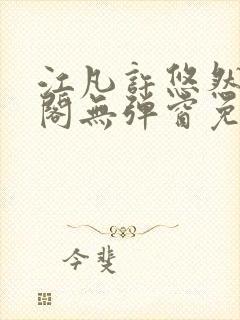 江凡許悠然
閣無彈窗免
今斐